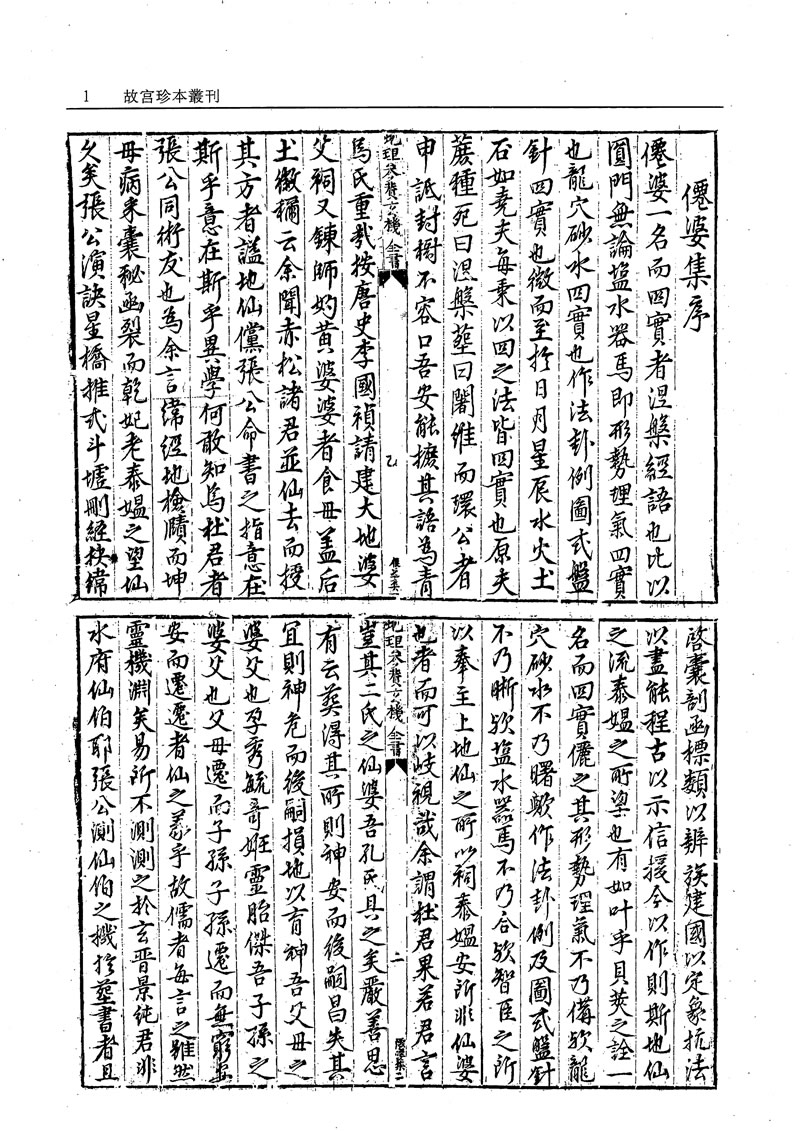 1 故宫珍本叢刊
僊婆集序
僊婆一名而四實者涅槃經語也比以
圓門無論塩水器馬即形勢理氣四實
也龍穴砂水四實也作法卦例圖式盤
針四實也微而至於日月星辰水火土
石如堯夫每乘以四之法皆四實也原夫
蘑種死曰涅槃塟曰闍維而環公者
申詆封樹不容口吾安能擴其語為青
地理參贊玄機仝書 乙 僊婆集
馬氏重哉按唐史李國禎請建大地婆
父祠又鍊師妁黄婆婆者食毋盖后
土徽稱云余聞赤松諸君並仙去而授
其方者謚地仙儻張公命書之指意在
斯乎意在斯乎異學何敢知為杜君者
張公同術友也為余言緯經地檢賾而坤
毋病釆囊秘函裂而乾妃老泰媪之望仙
久矣張公演訣星橋推式斗墟剛經柍緯
啓囊剖函標類以辨族建國以定象抗法
以盡能程古以示信援今以作則斯地仙
之流泰媪之所梁也有如叶乎貝莢之詮一
名而四實儷之其形勢理氣不乃備欤龍
穴砂水不乃曙歟作法卦例及圖式盤針
不乃晰欤塩水器馬不乃合欤智臣之所
以奉至上地仙之所以祠泰媪安所非仙婆
也者而可以歧視哉余謂杜君果若君言
地理參贊玄機仝書 二 僊婆集二
豈其二氏之仙婆吾孔氏具之矣嚴善思
有云葵得其所則神安而後嗣昌失其
宜則神危而後嗣損地以育神吾父毋之
婆父也孕秀毓奇姙靈胎傑吾子孫之
婆父也父毋遷而子孫子孫遷而無窮岀
安而遷遷者仙之義乎故儒者每言之雖然
靈機淵矣易所不測測之於玄晋景純君非
水府仙伯耶張公測仙伯之機於塟書者且